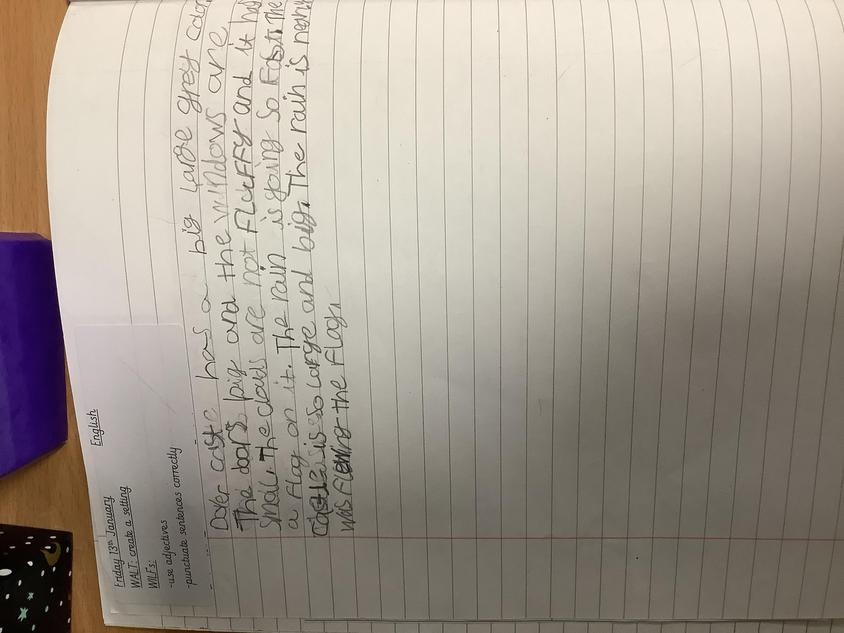 Friday 13th January English
WALT: create a setting
WILFs:
-use adjectives
-punctuate sentences correctly
Dver castc has a big large grey
The doors big and the windows are
small. The clouds are not FLUFFY and it has
a flag on it. The rain is going so Fast. The
Castle is so large and big. The rain is
was the Flag.